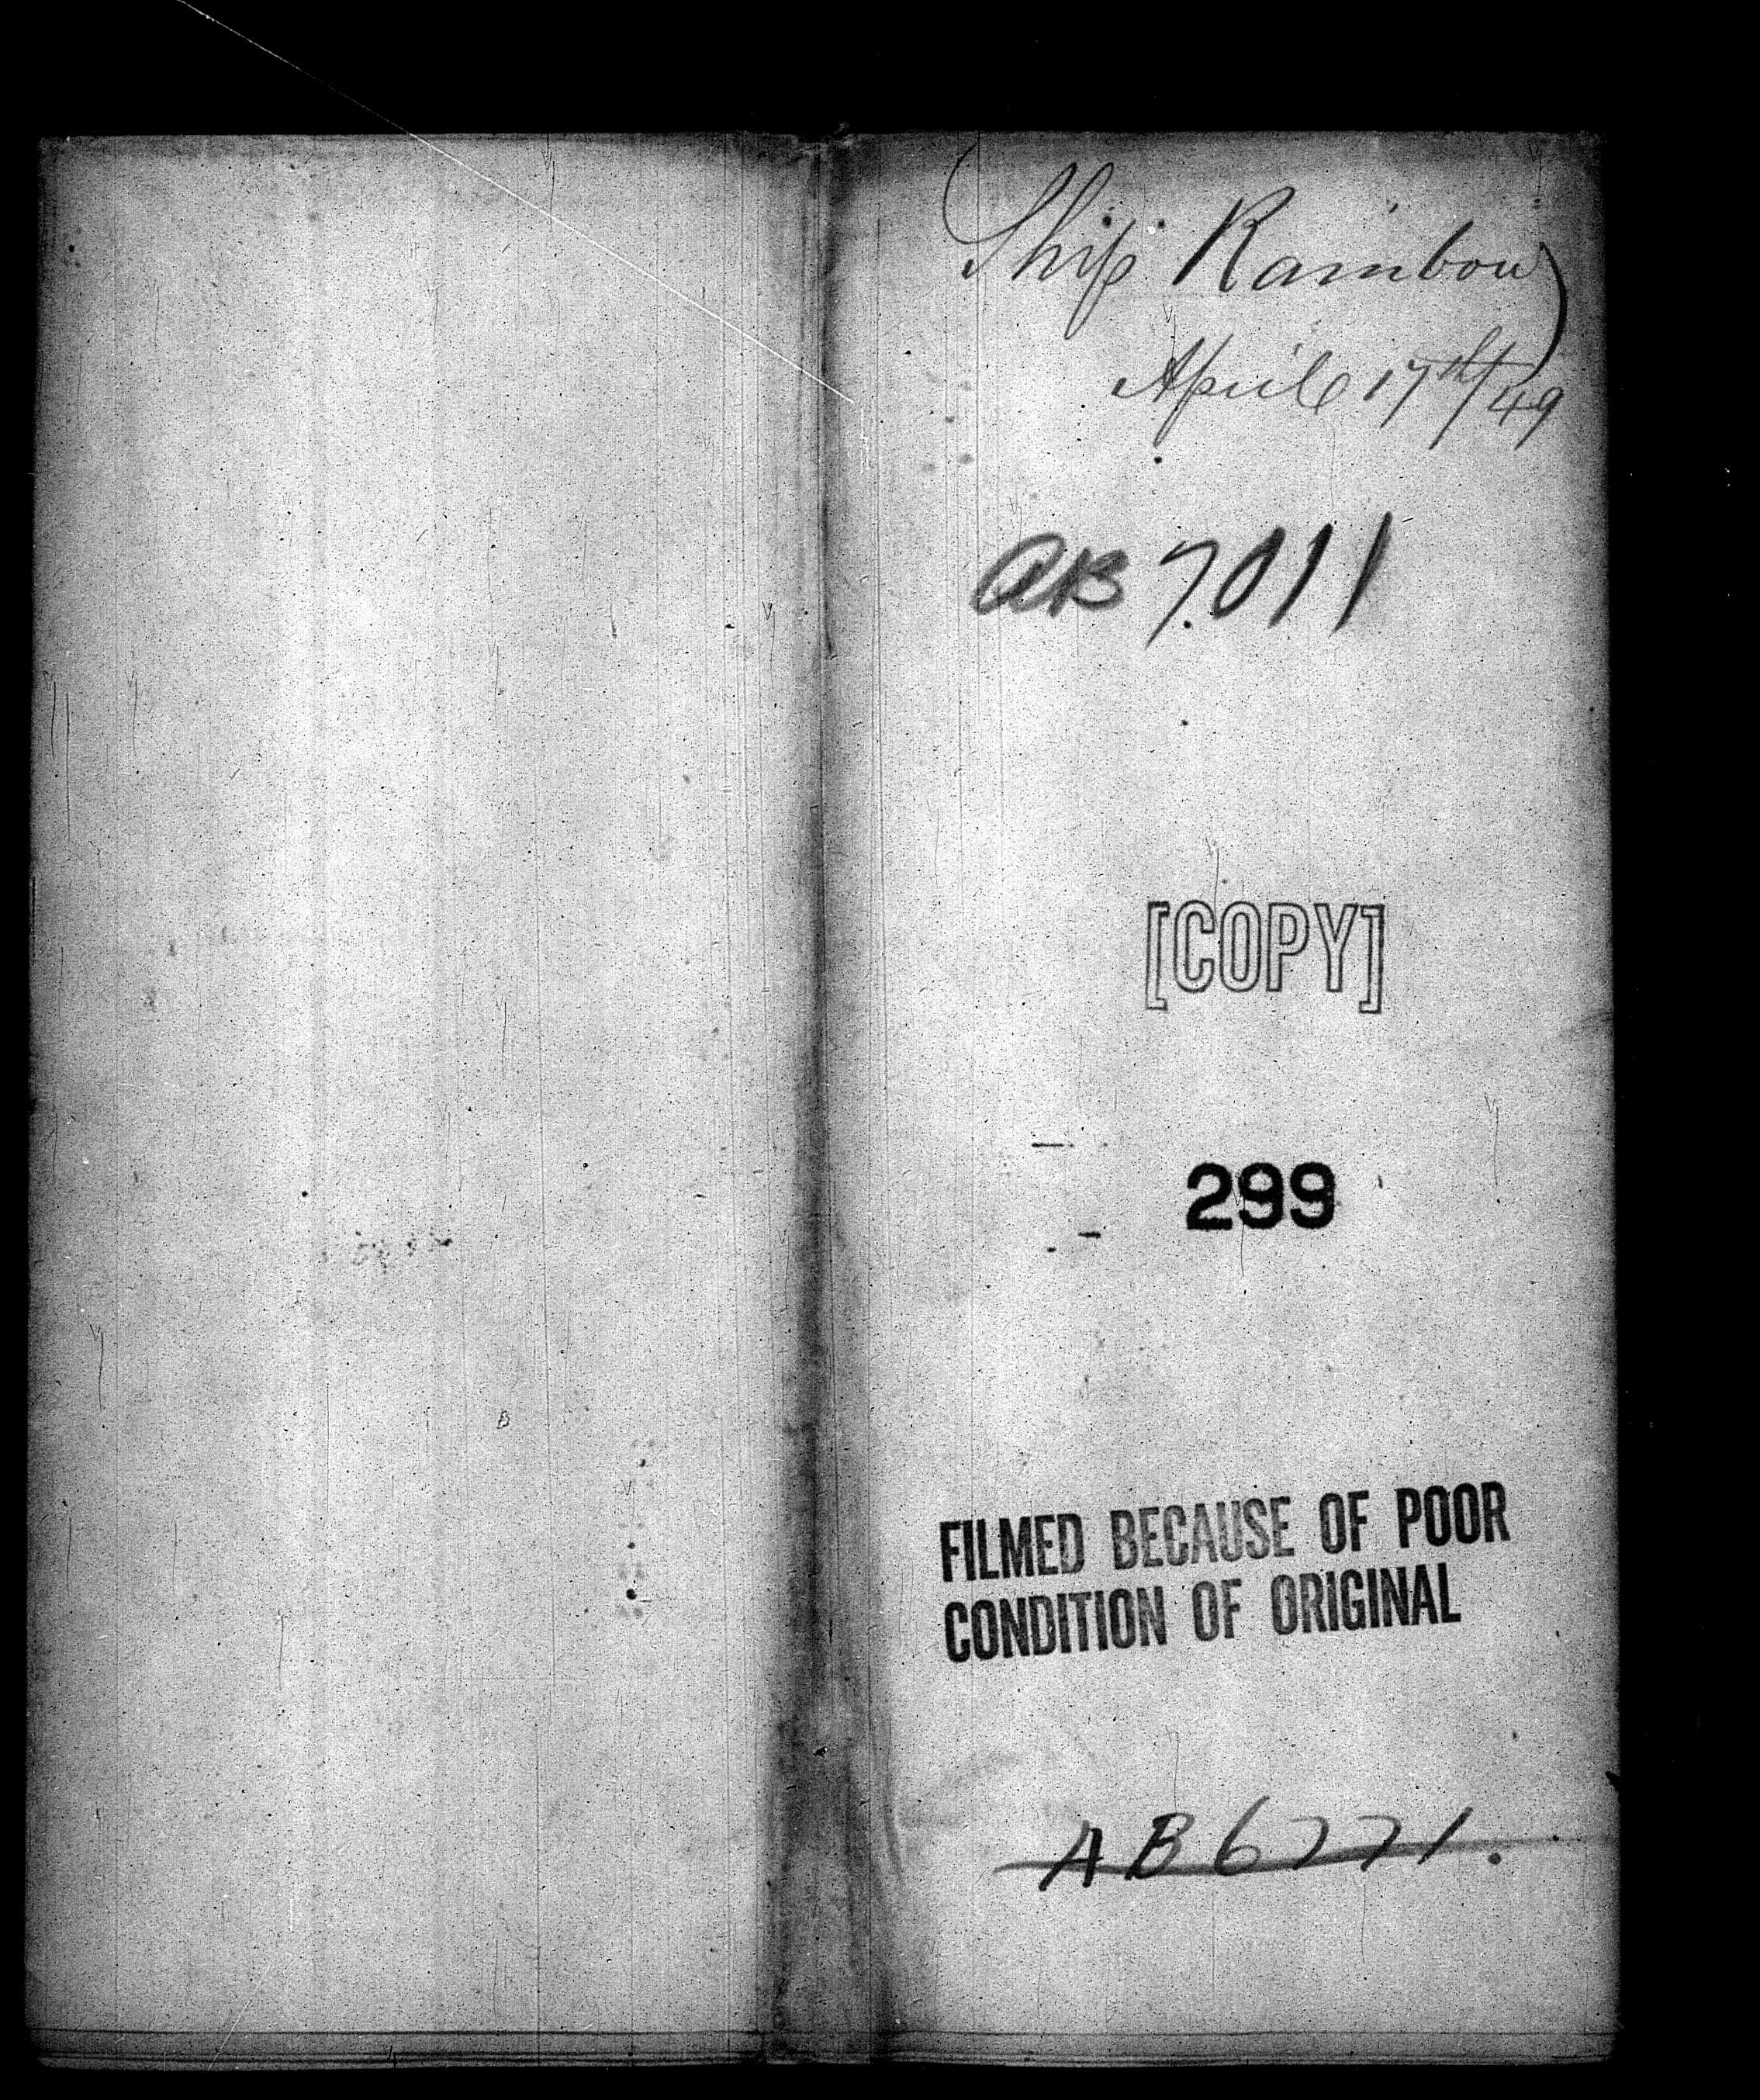 Ship Rainbow
April 17th/49
AB 7011
[COPY]
299
FILMED BECAUSE OF POOR
CONDITION OF ORIGINAL
AB6771.